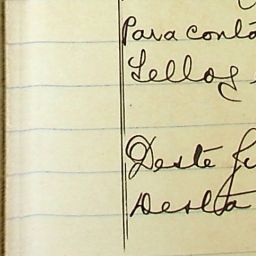 Para conta
Sellos
Deste
Desta